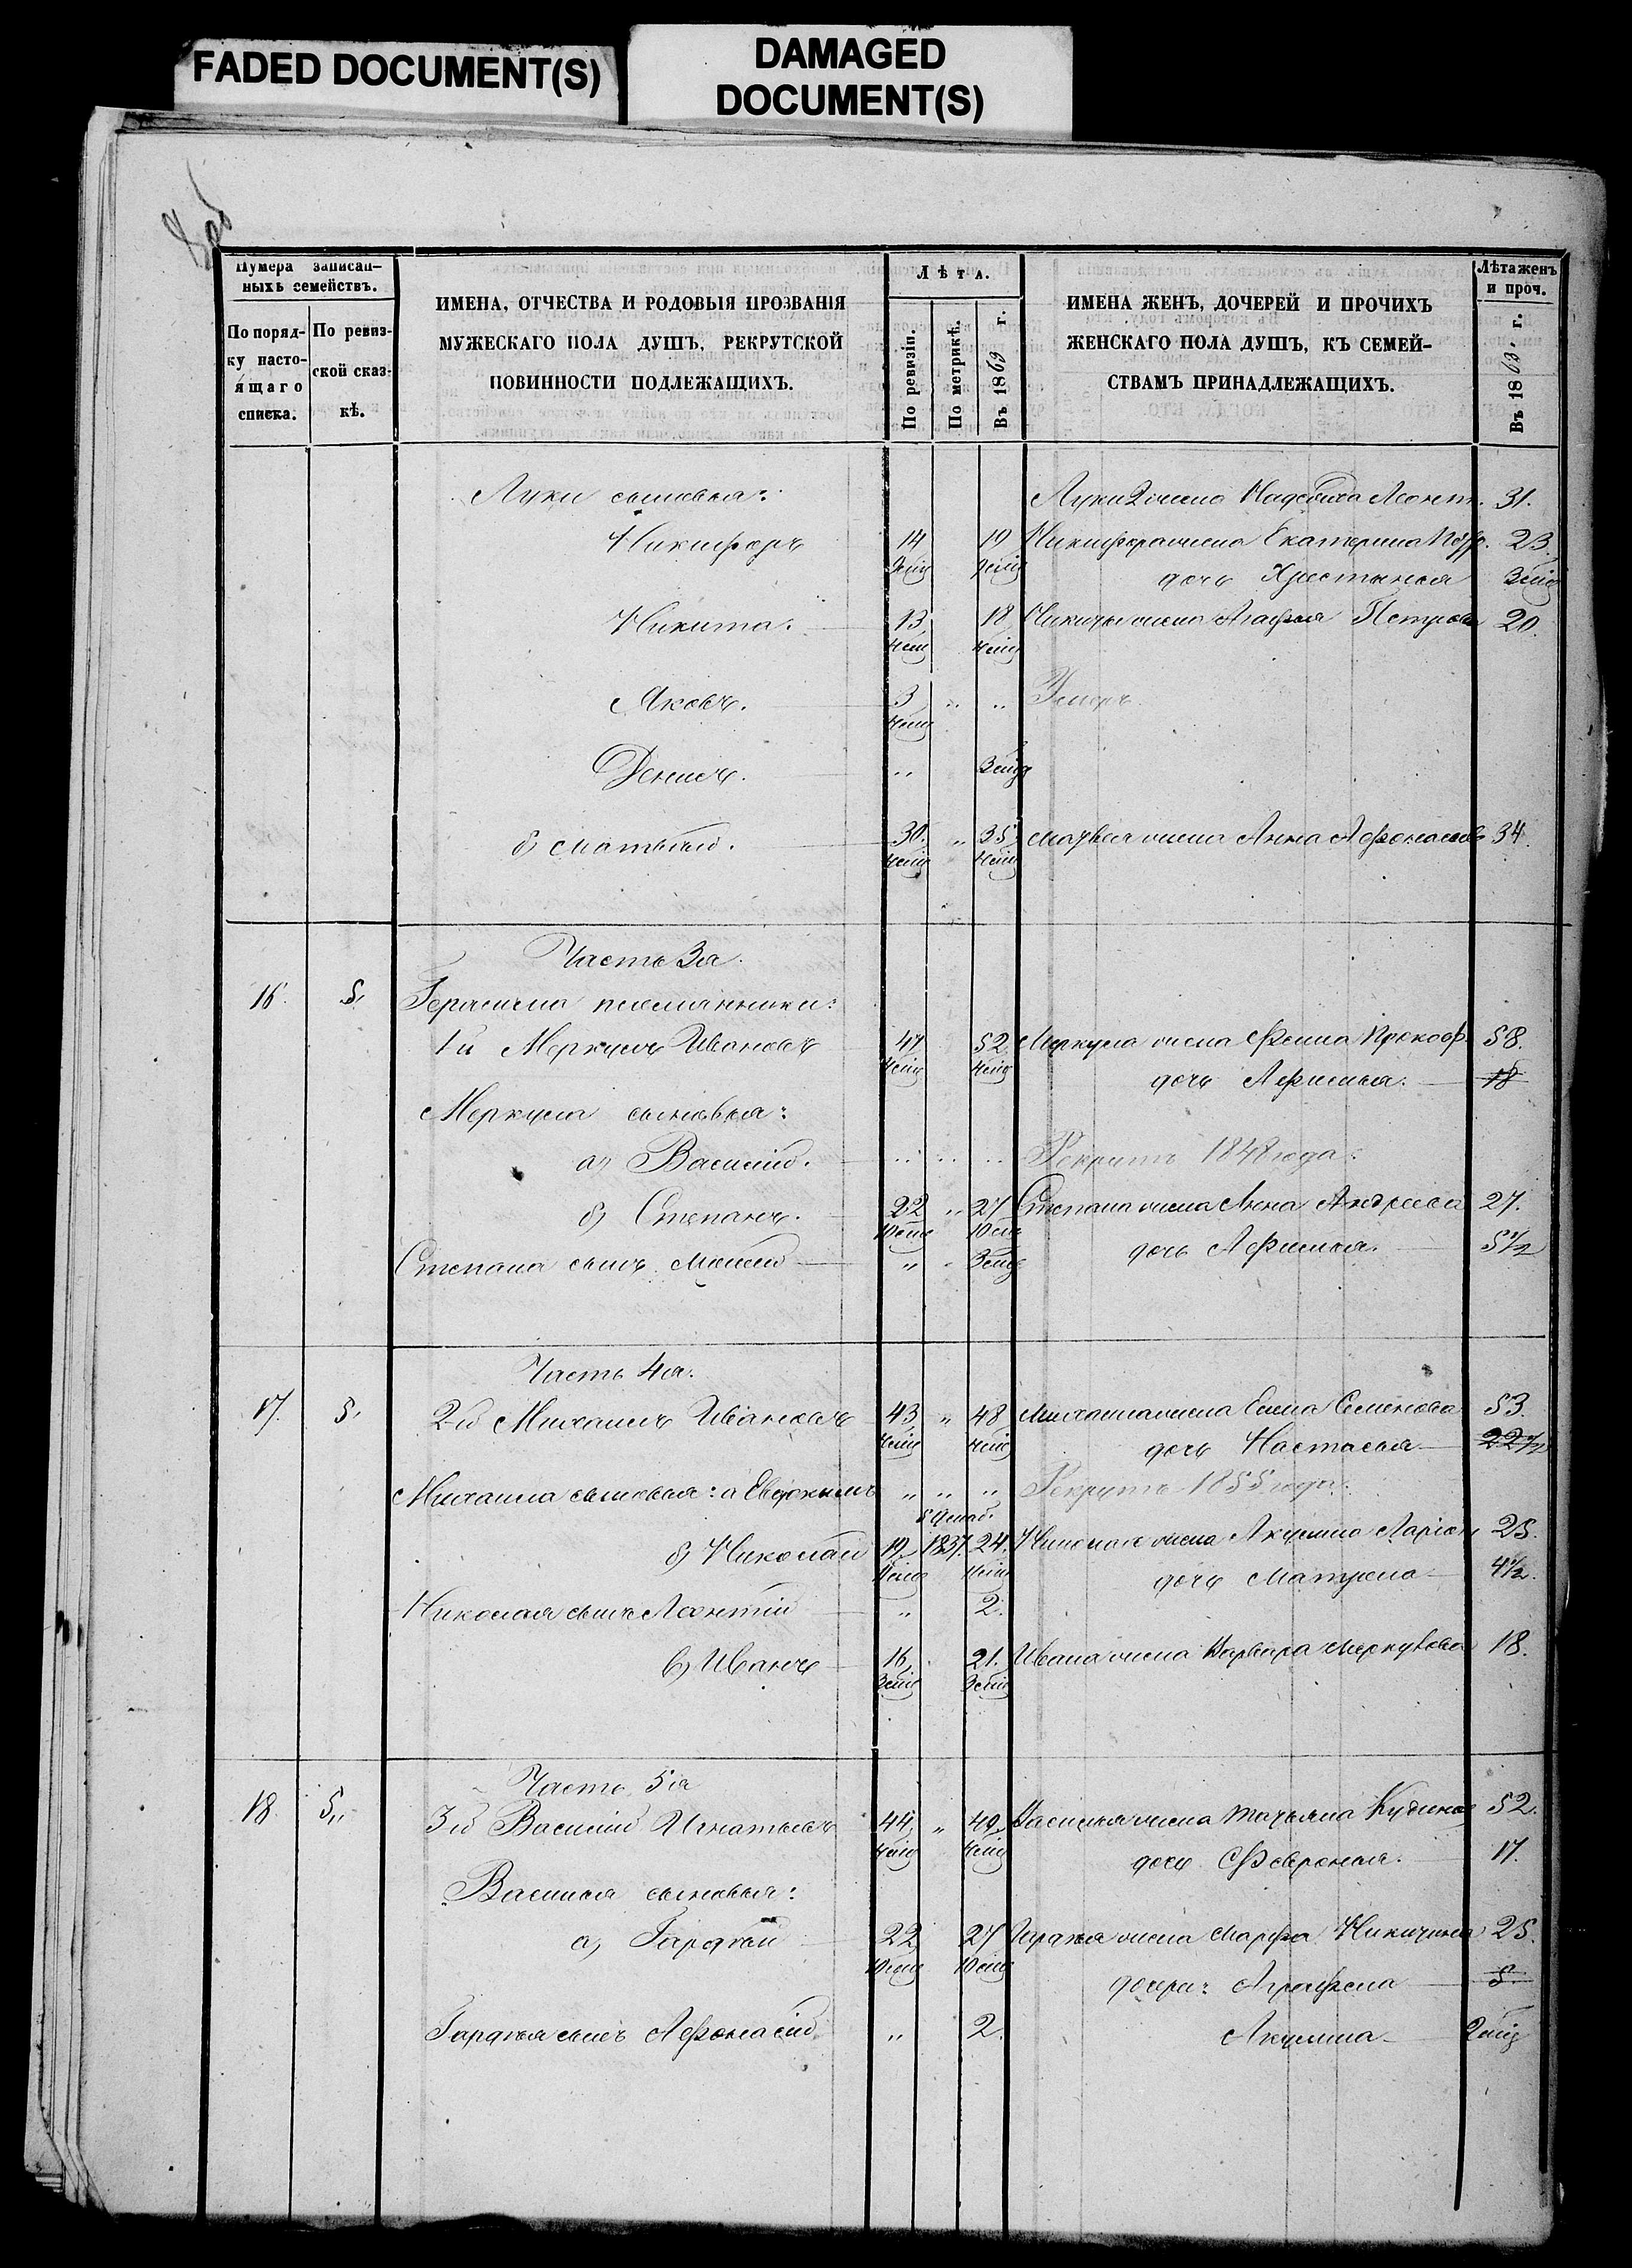 FADED DOCUMENT(S)
DAMAGED
DOCUMENT(S)
Нумера записан-
ныхъ семействъ.
По поряд-
ку насто-
ящаго
списка.
По ревиз-
ской сказ-
кѣ.
ИМЕНА, ОТЧЕСТВА И РОДОВЫЯ ПРОЗВАНІЯ
МУЖЕСКАГО ПОЛА ДУШЪ, РЕКРУТСКОЙ
ПОВИННОСТИ ПОДЛЕЖАЩИХЪ.
Лѣта.
По ревизіи.
По метрикѣ.
Въ 1863 г.
ИМЕНА ЖЕНЪ, ДОЧЕРЕЙ И ПРОЧИХЪ
ЖЕНСКАГО ПОЛА ДУШЪ, КЪ СЕМЕЙ-
СТВАМЪ ПРИНАДЛЕЖАЩИХЪ.
Лѣта женъ
и проч.
Въ 1863 г.
Луки сыновья: Луки жена 31.
Никифоръ 14 19 Никифора жена Екатерина 23.
дочь Христинья
Никита. 13 18 Никиты жена Агафья Петрова 20.
Яковъ. 3 „ „ Умеръ
Денисъ. „
б, Матвѣй. 30. „ 35 Матвѣя жена Анна Афонасьев 34.
Часть 3я.
16. 5. Герасима племянники:
1й Меркулъ Ивановъ 47 52 Меркула жена Фекла Прокоф. 58.
дочь Афимья. 18
Меркула сыновья:
а, Василій. Рекрутъ 1848 года.
б, Степанъ. 22 „ 27 Степана жена Анна Андреева 27.
дочь Афимья. 5½
Степана сынъ Моисей „
Часть 4я.
17. 5. 2й Михаилъ Ивановъ 43 „ 48 Михаила жена Елена Семенова 53.
дочь Настасья 22½
Михаила сыновья: а Евдокимъ „ „ „ Рекрутъ 1855 года.
б, Николай 19 1837. 24. Николая жена Акулина Ларіон 25.
дочь Матрена 4½.
Николая сынъ Леонтій „ 2.
в, Иванъ 16 21. Ивана жена Варвара Меркулова 18.
Часть 5я
18. 5„ 3й Василій Игнатьевъ 44, „ 49. Василья жена Татьяна 52.
дочь Февронья. 17.
Василья сыновья:
а, Гордѣй 22 27 Гордѣя жена Марфа Никитина 25.
дочери: Аграфена 5.
Гордѣя сынъ Афонасій „ 2. Акулина